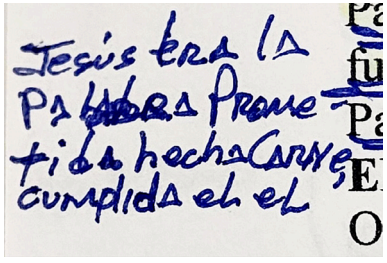 Jesús era la
Palabra Prome-
tida hecha Carne,
cumplida en el
Pa
fu
Pa
E
O